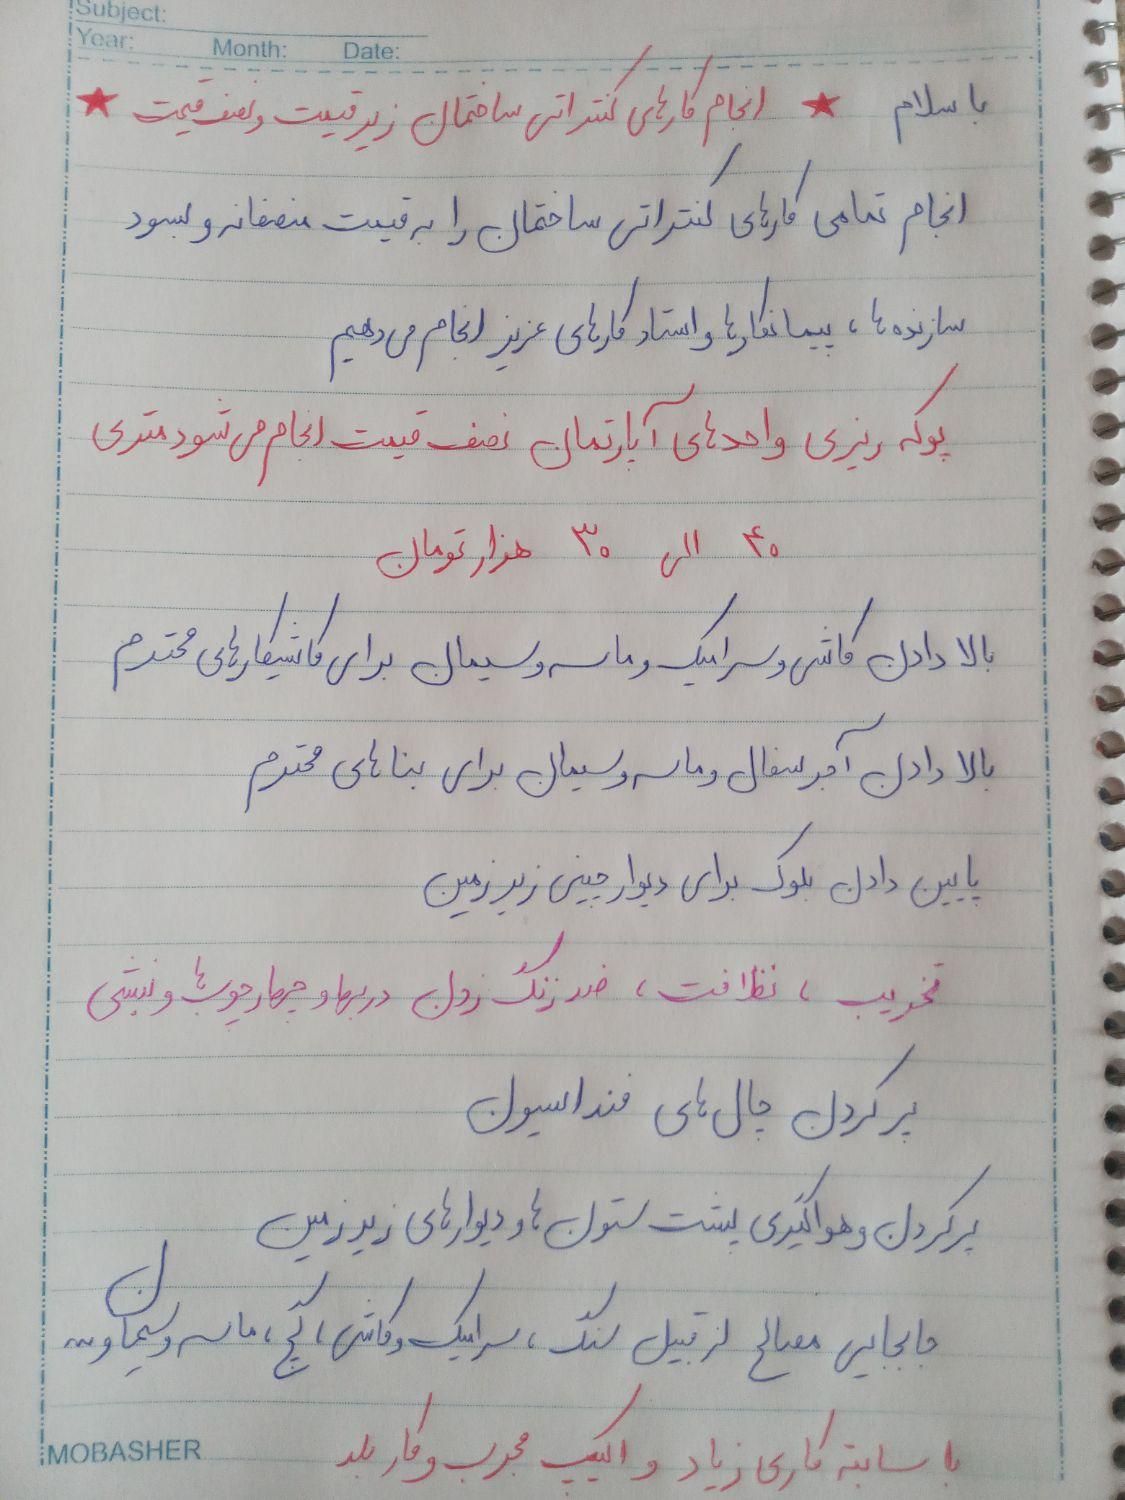 Subject:
Year: Month: Date:
با سلام ★ انجام کارهای کنتراتی ساختمان زیر قیمت و نصف قیمت ★
انجام تمامی کارهای کنتراتی ساختمان را به قیمت منصفانه و بسود
سازنده ها ، پیمانکارها و استاد کارهای عزیز انجام می دهیم
پوکه ریزی واحدهای آپارتمان نصف قیمت انجام می شود متری
۴۰ الی ۳۰ هزار تومان
بالا دادن کاشی و سرامیک و ماسه و سیمان برای کاشیکارهای محترم
بالا دادن آجر سفال و ماسه و سیمان برای بناهای محترم
پایین دادن بلوک برای دیوار چینی زیر زمین
تخریب ، نظافت ، ضد زنگ زدن دربها و چهارچوب ها و نبشی
پر کردن چال های فنداسیون
پر کردن و هواگیری پشت ستون ها و دیوارهای زیر زمین
جابجایی مصالح از قبیل سنگ ، سرامیک و کاشی ، گچ ، ماسه و سیمان و ...
با سابقه کاری زیاد و اکیپ مجرب و کار بلد
MOBASHER